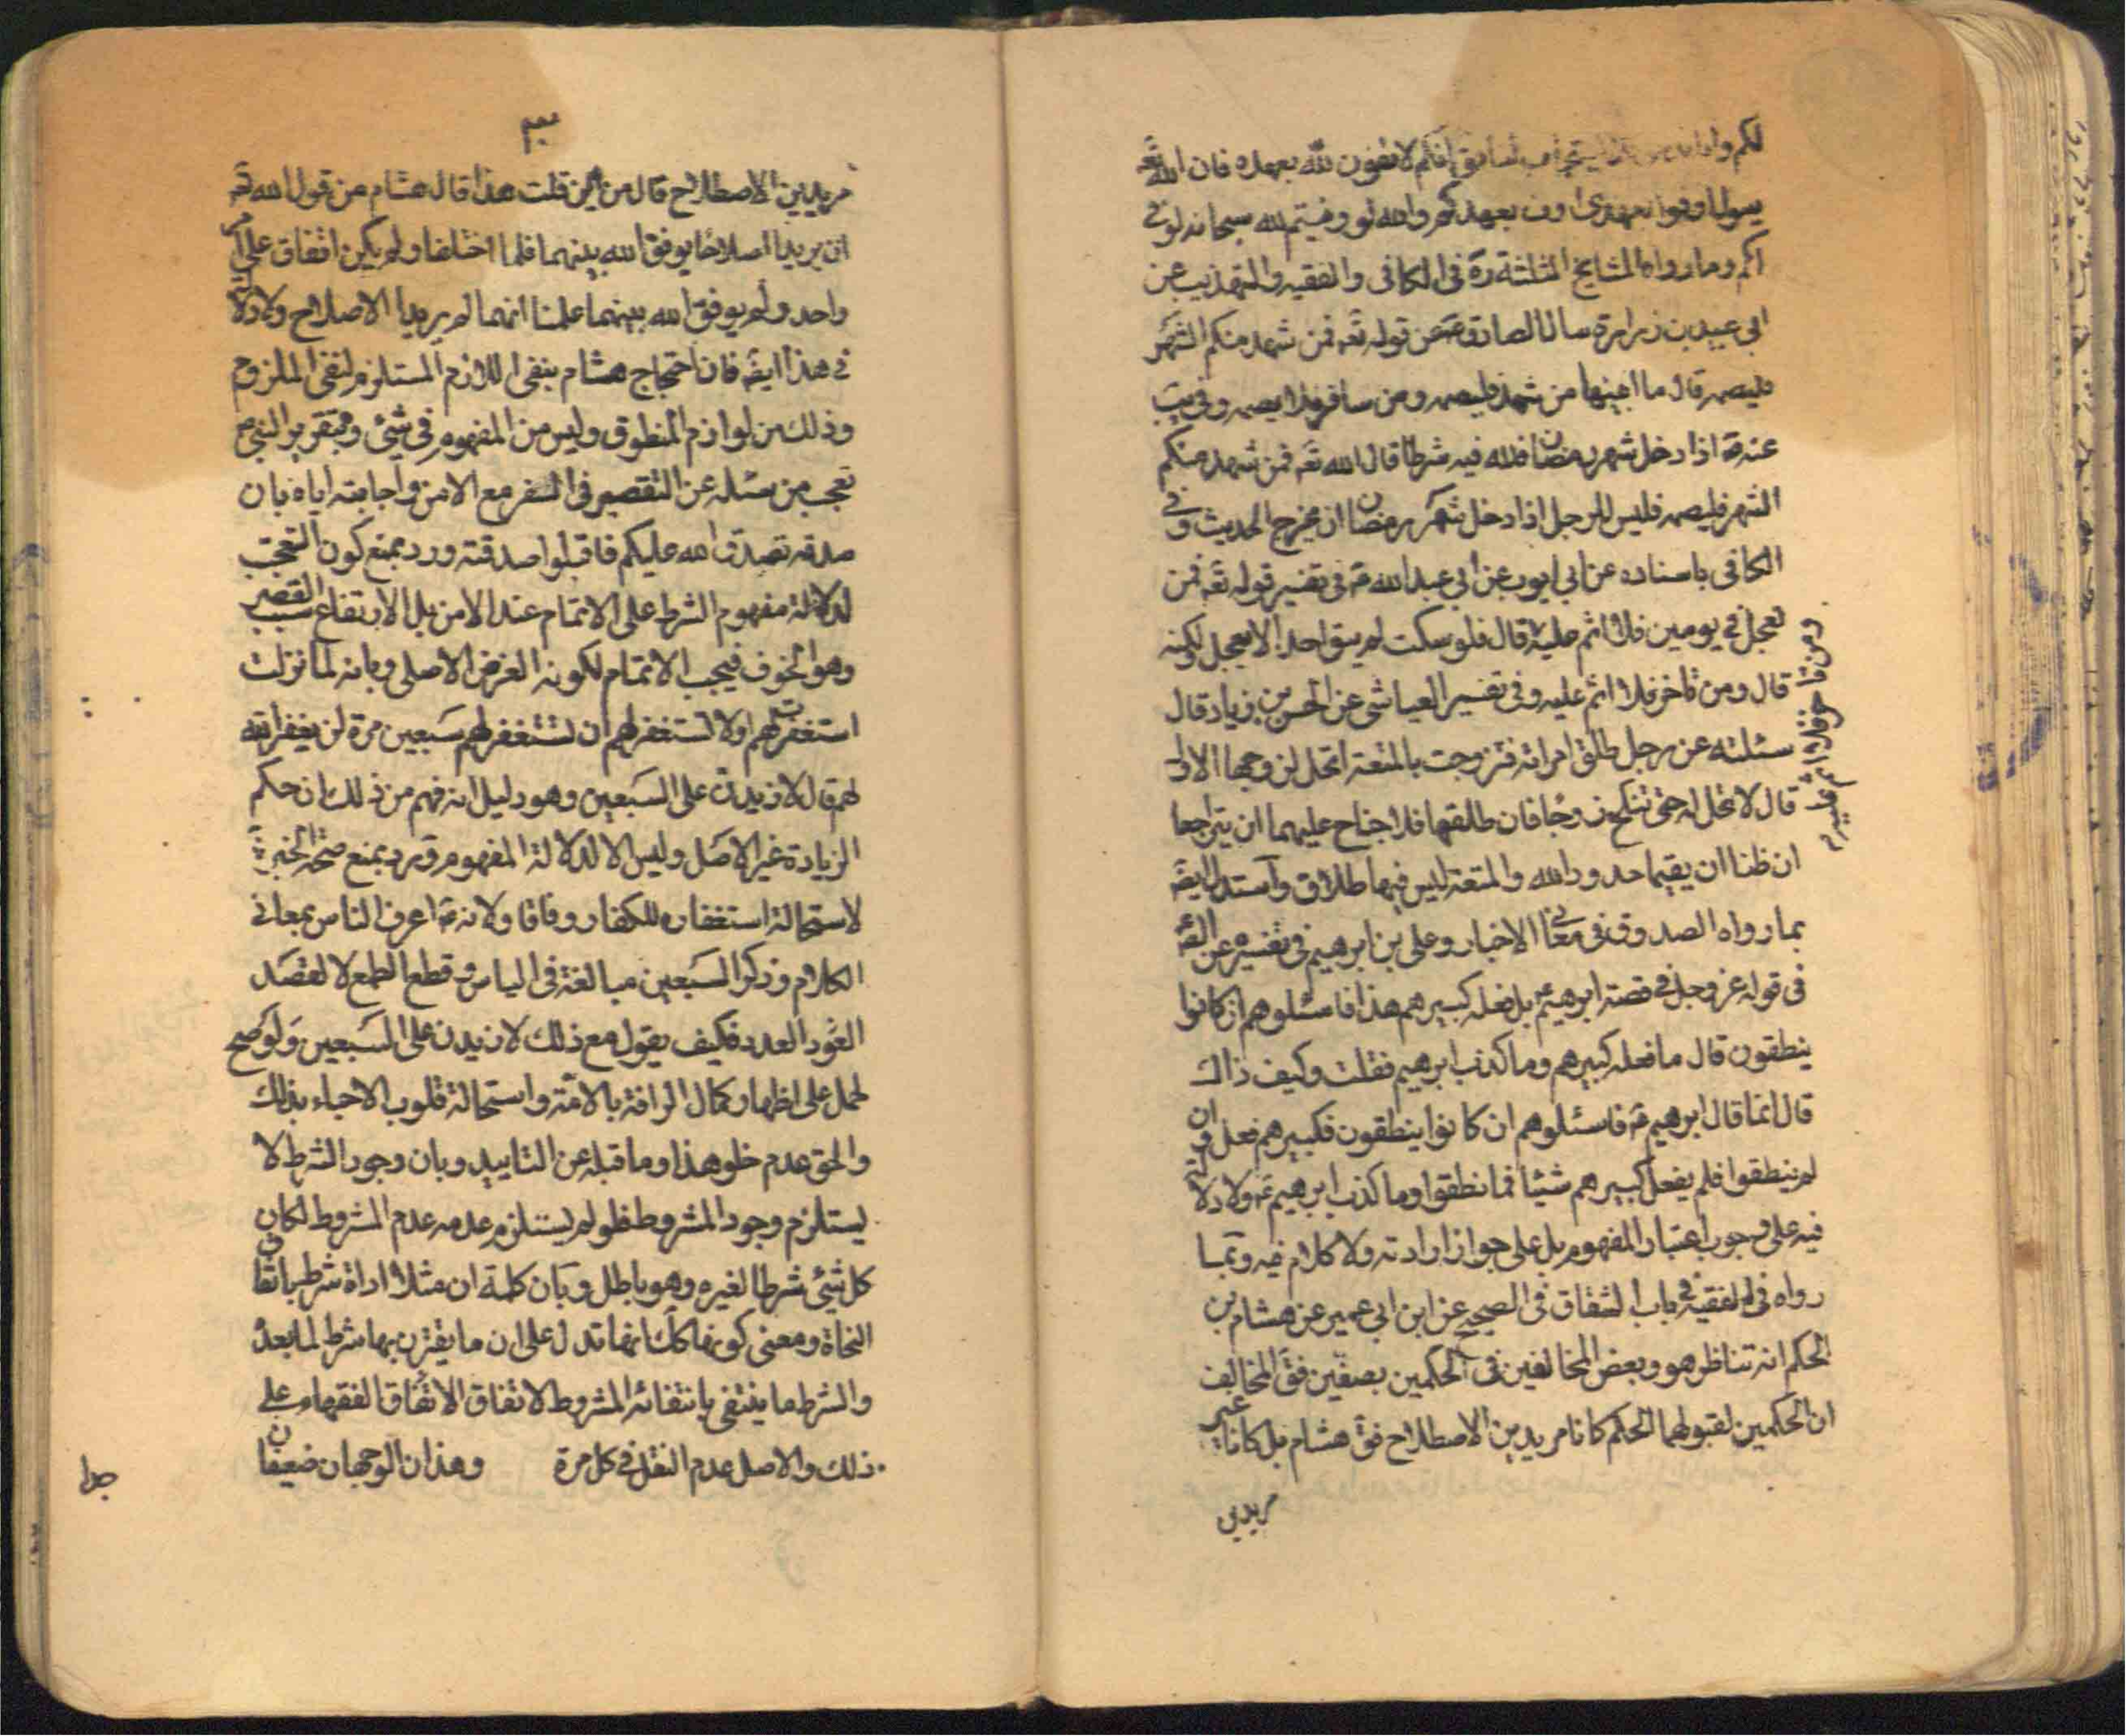 لكم وان الله فانكم لا تفون لله بعهده فان الله تعه
يقول اوفوا بعهدى اوف بعهدكم والله لو وفيتم لله سبحانه لوفى
لكم وما رواه المشايخ الثلثة ره فى الكافى والفقيه والتهذيب عن
ابى عبيد بن زرارة سال الصادق عه عن قوله تعه فمن شهد منكم الشهر
فليصمه قال ما ابينها من شهد فليصمه ومن سافر فلا يصمه وفى يب
عنه عه اذا دخل شهر رمضان فلله فيه شرط قال الله تعه فمن شهد منكم
الشهر فليصمه فليس للرجل اذا دخل شهر رمضان ان يخرج الحديث وفى
الكافى باسناده عن ابى ايوب عن ابى عبد الله عه فى تفسير قوله تعه فمن
تعجل فى يومين فلا اثم عليه قال فلو سكت لم يبق احد الا يعجل ولكنه
قال ومن تاخر فلا اثم عليه وفى تفسير العياشى عن الحسن بن زياد قال
ومن تاخر فلا اثم عليه م
سئلته عن رجل طلق امراته فتزوجت بالمتعة اتحل لزوجها الاول
قال لا تحل له حتى تنكح زوجا فان طلقها فلا جناح عليهما ان يتراجعا
ان ظنا ان يقيما حدود الله والمتعة ليس فيها طلاق واستدل ايضه
بما رواه الصدوق فى معانى الاخبار وعلى بن ابرهيم فى تفسيره عن الصه
فى قوله عز وجل فى قصة ابرهيم عه بل فعله كبيرهم هذا فاسئلوهم ان كانوا
ينطقون قال ما فعله كبيرهم وما كذب ابرهيم فقلت وكيف ذاك
قال انما قال ابرهيم عه فاسئلوهم ان كانوا ينطقون فكبيرهم فعل وان
لم ينطقوا فلم يفعل كبيرهم شيئا فما نطقوا وما كذب ابرهيم عه ولا دلالة
فيه على وجوب اعتبار المفهوم بل على جواز ارادته ولا كلام فيه وبما
رواه فى الفقيه فى باب الشقاق فى الصحيح عن ابن ابى عمير عن هشام بن
الحكم انه تناظر هو وبعض المخالفين فى الحكمين بصفين فقال المخالف
ان الحكمين لقبولهما الحكم كانا مريدين الاصطلاح فق هشام بل كانا غير
مريدين
٣
مريدين الاصطلاح قال من اين قلت هذا قال هشام من قول الله تعه
ان يريدا اصلاحا يوفق الله بينهما فلما اختلفا ولم يكن اتفاق على امر
واحد ولم يوفق الله بينهما علمنا انهما لم يريدا الاصلاح ولا دلالة
فى هذا ايضه فان احتجاج هشام بنفى اللازم المستلزم لنفى الملزوم
وذلك من لوازم المنطوق وليس من المفهوم فى شئ وبتقرير النبى ص
تعجب من سئله عن التقصير فى السفر مع الامن واجابته اياه بان
صدقه تصدق الله عليكم فاقبلوا صدقته ورد بمنع كون التعجب
لدلالة مفهوم الشرط على الاتمام عند الامن بل الارتفاع سبب القصر
وهو الخوف فيجب الاتمام لكونه الغرض الاصلى وبانه لما نزلت
استغفر لهم اولا تستغفر لهم ان تستغفر لهم سبعين مرة لن يغفر الله
لهم قال لازيدن على السبعين وهو دليل انه فهم من ذلك ان حكم
الزيادة غير الاصل وليس الا لدلالة المفهوم ورد بمنع صحة الخبر
لاستحالة استغفاره للكفار وفاقا ولانه عه اعرف الناس بمعانى
الكلام وذكر السبعين مبالغة فى الياس وقطع الطمع لا لقصد
العدد فكيف يقول مع ذلك لازيدن على السبعين ولو صح
لحمل على اظهار كمال الرافة بالامة واستحالة قلوب الاحياء بذلك
والحق عدم خلو هذا وما قبله عن التاييد وبان وجود الشرط لا
يستلزم وجود المشروط فلو لم يستلزم عدمه عدم المشروط لكان
كل شئ شرطا لغيره وهو باطل وبان كلمة ان مثلا اداة شرط باتفاق
النحاة ومعنى كونها كك انها تدل على ان ما يقترن بها شرط لما بعده
والشرط ما ينتفى بانتفائه المشروط لاتفاق الفقهاء على
ذلك والاصل عدم النقل فى كل مرة وهذان الوجهان ضعيفان
جدا